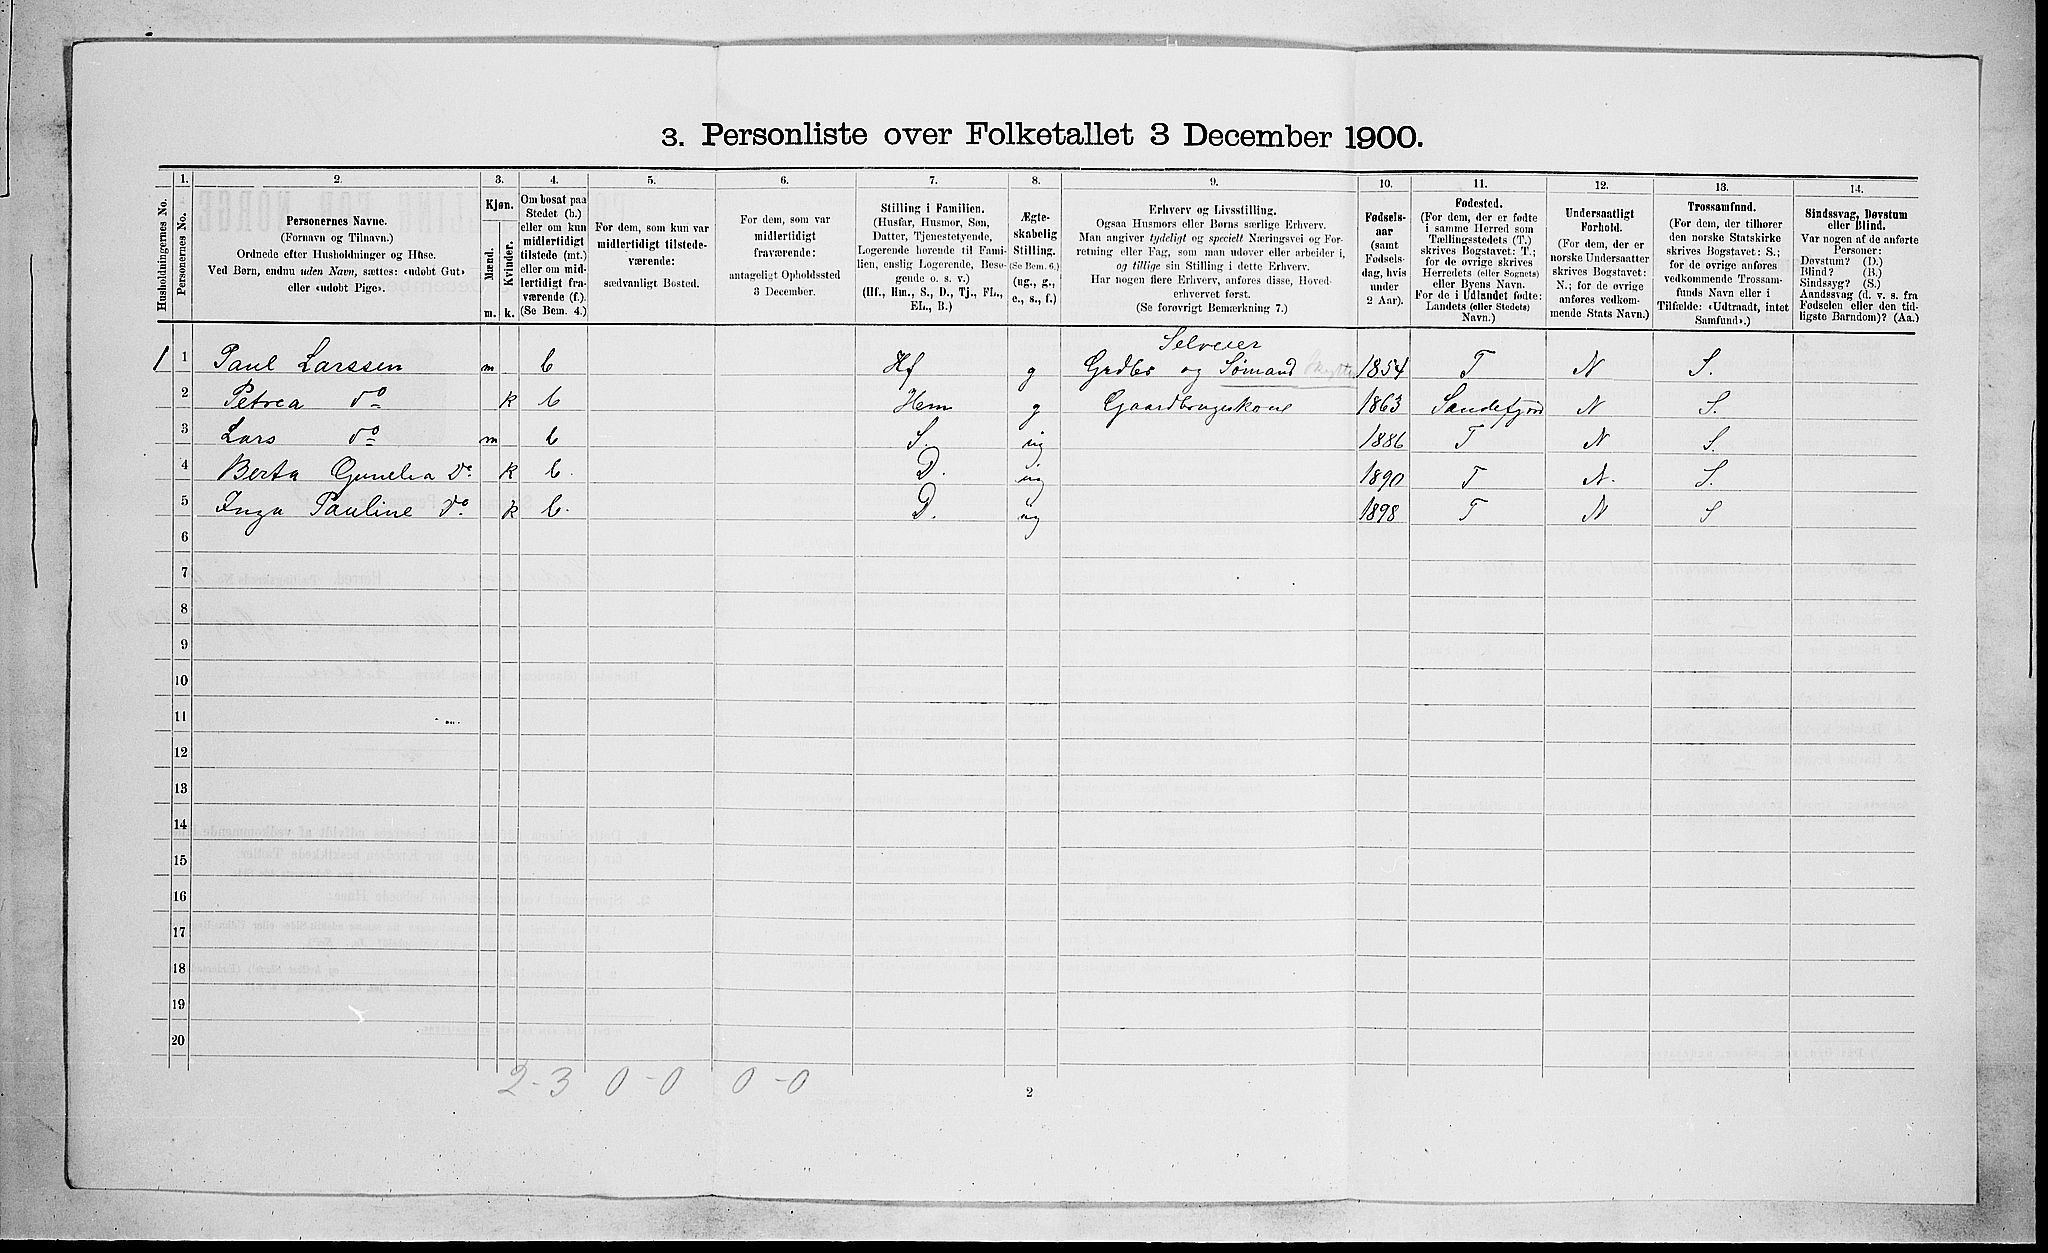 3. Personliste over Folketallet 3 December 1900.
1. 2. 3. 4. 5. 6. 7. 8. 9. 10. 11. 12. 13. 14.
Husholdningernes No.
Personernes No.
Personernes Navne.
(Fornavn og Tilnavn.)
Ordnede efter Husholdninger og Huse.
Ved Børn, endnu uden Navn, sættes: «udøbt Gut»
eller «udøbt Pige».
Kjøn.
Mænd.
Kvinder.
m. k.
Om bosat paa
Stedet (b.)
eller om kun
midlertidigt
tilstede (mt.)
eller om mid-
lertidigt fra-
værende (f.)
(Se Bem. 4.)
For dem, som kun var
midlertidigt tilstede-
værende:
sædvanligt Bosted.
For dem, som var
midlertidigt
fraværende:
antageligt Opholdssted
3 December.
Stilling i Familien.
(Husfar, Husmor, Søn,
Datter, Tjenestetyende,
Logerende hørende til Fami-
lien, enslig Logerende, Besø-
gende o. s. v.)
(Hf., Hm., S., D., Tj., FL.,
EL., B.)
Ægte-
skabelig
Stilling.
(Se Bem. 6.)
(ug., g.,
e., s., f.)
Erhverv og Livsstilling.
Ogsaa Husmors eller Børns særlige Erhverv.
Man angiver tydeligt og specielt Næringsvei og For-
retning eller Fag, som man udøver eller arbeider i,
og tillige sin Stilling i dette Erhverv.
Har nogen flere Erhverv, anføres disse, Hoved-
erhvervet først.
(Se forøvrigt Bemærkning 7.)
Fødsels-
aar
(samt
Fødsels-
dag, hvis
under
2 Aar).
Fødested.
(For dem, der er fødte
i samme Herred som
Tællingsstedets (T.)
skrives Bogstavet: T.;
for de øvrige skrives
Herredets (eller Sognets)
eller Byens Navn.
For de i Udlandet fødte:
Landets (eller Stedets)
Navn.)
Undersaatligt
Forhold.
(For dem, der er
norske Undersaatter
skrives Bogstavet:
N.; for de øvrige
anføres vedkom-
mende Stats Navn.)
Trossamfund.
(For dem, der tilhører
den norske Statskirke
skrives Bogstavet: S.;
for de øvrige anføres
vedkommende Trossam-
funds Navn eller i
Tilfælde: «Udtraadt, intet
Samfund».)
Sindssvag, Døvstum
eller Blind.
Var nogen af de anførte
Personer:
Døvstum? (D.)
Blind? (B.)
Sindssyg? (S.)
Aandssvag (d. v. s. fra
Fødselen eller den tid-
ligste Barndom)? (Aa.)
Selveier
1 1 Paul Larssen m b Hf g Grdbr og Sømand 1854 T N S.
2 Petrea do k b Hem g Gaardbrugeskone 1863 Sandefjord N S.
3 Lars do m b S. ug 1886 T N S.
4 Berta Gunelia do. k b. D. ug 1890 T N. S.
5 Inga Pauline do. k b. D. ug 1898 T N S
6
7
8
9
10
11
12
13
14
15
16
17
18
19
20
2-3 0-0 0-0
2